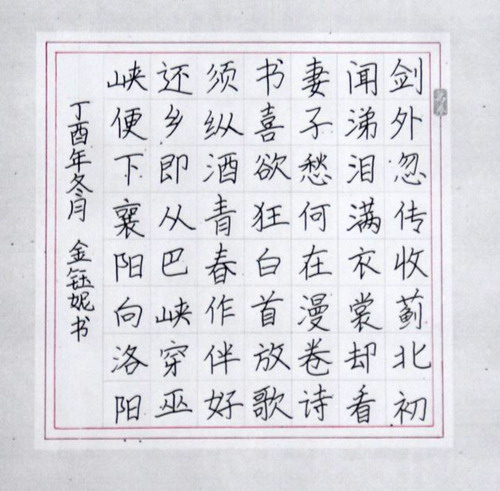 剑外忽传收蓟北初
闻涕泪满衣裳却看
妻子愁何在漫卷诗
书喜欲狂白首放歌
须纵酒青春作伴好
还乡即从巴峡穿巫
峡便下襄阳向洛阳
丁酉年冬月 金钰妮书